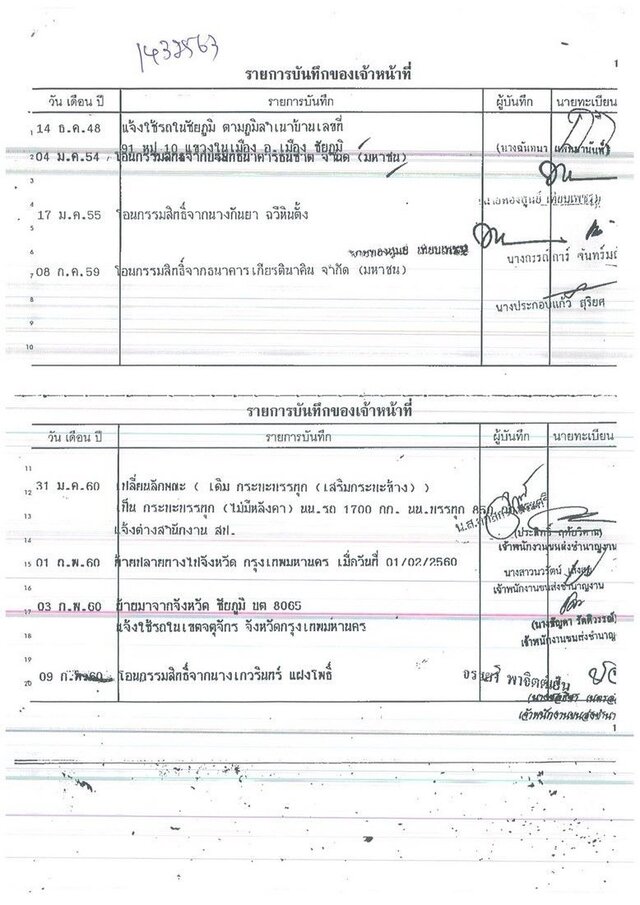 1432563
1
รายการบันทึกของเจ้าหน้าที่
วัน เดือน ปี รายการบันทึก ผู้บันทึก นายทะเบียน
14 ธ.ค.48 แจ้งใช้รถในชัยภูมิ ตามภูมิลำเนาบ้านเลขที่
1 91 หมู่ 10 แขวงในเมือง อ.เมือง ชัยภูมิ (นางฉันทนา
2 04 ม.ค.54 โอนกรรมสิทธิ์จากบริษัทธนาคารธนชาต จำกัด (มหาชน)
3
4 นายทองศูนย์ เทียบเพชร
17 ม.ค.55 โอนกรรมสิทธิ์จากนางกันยา ฉวีหินตั้ง
5
6 นายทองศูนย์ เทียบเพชร นางกรรณิการ์ จันทร์
7 08 ก.ค.59 โอนกรรมสิทธิ์จากธนาคารเกียรตินาคิน จำกัด (มหาชน)
8 นางประกอบแก้ว สุริยศ
9
10
รายการบันทึกของเจ้าหน้าที่
วัน เดือน ปี รายการบันทึก ผู้บันทึก นายทะเบียน
11
12 31 ม.ค.60 เปลี่ยนลักษณะ ( เดิม กระบะบรรทุก (เสริมกระบะข้าง) )
เป็น กระบะบรรทุก (ไม่มีหลังคา) นน.รถ 1700 กก. นน.บรรทุก
13 (ประสิทธิ์
14 แจ้งต่างสำนักงาน สป. เจ้าพนักงานขนส่งชำนาญงาน
15 01 ก.พ.60 ย้ายปลายทางไปจังหวัด กรุงเทพมหานคร เมื่อวันที่ 01/02/2560 นางสาวนวรัตน์
16 เจ้าพนักงานขนส่งชำนาญงาน
17 03 ก.พ.60 ย้ายมาจากจังหวัด ชัยภูมิ บต 8065
18 แจ้งใช้รถในเขตจตุจักร จังหวัดกรุงเทพมหานคร เจ้าพนักงานขนส่งชำนาญ
19
20 09 ก.พ.60 โอนกรรมสิทธิ์จากนางเกวรินทร์ แฝงโพธิ์
เจ้าพนักงานขนส่งชำนา
1